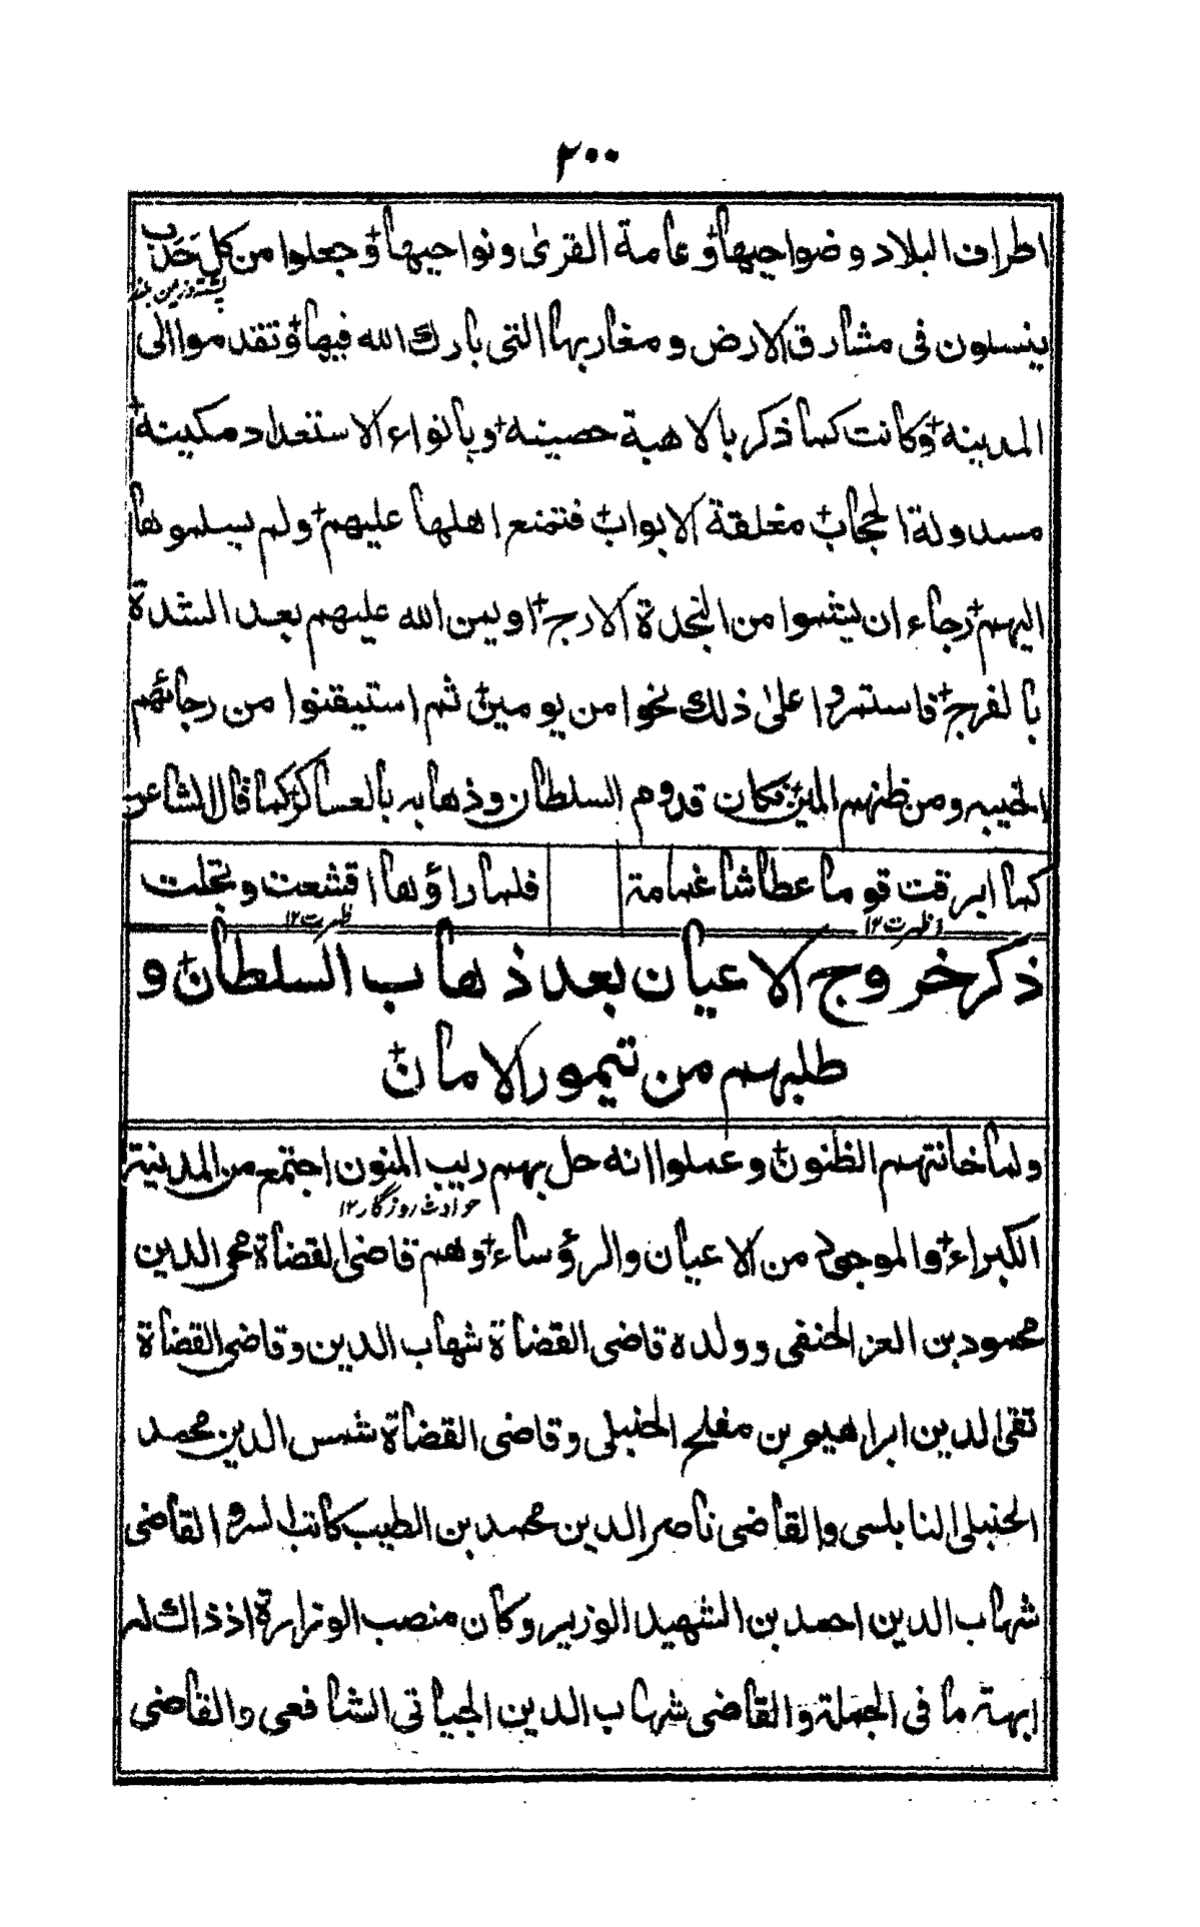 ٢٠٠
اطراف البلاد وضواحيها وعامة القرى ونواحيها وجعلوا من كل حَدَب
پشته وزمین بلند
ينسلون فى مشارق الارض ومغاربها التى بارك الله فيها وتقدموا الى
المدينه وكانت كما ذكر بالاهبة حصينه وبانواء الاستعداد مكينة
مسدولة الحجاب مغلقة الابواب فتمنع اهلها عليهم ولم يسلموها
اليهم رجاء ان يشموا من النجدة الارج او يمن الله عليهم بعد الشدة
بالفرج فاستمروا على ذلك نحوا من يومين ثم استيقنوا من رجائهم
الخيبه ومن ظنهم المين فكان قدوم السلطان وذهابه بالعساكر كما قال الشاعر
كما ابرقت قوما عطاشا غمامة فلما راؤها اقشعت وتجلت
ظهرت ١٢ ظهرت ١٢
ذكر خروج الاعيان بعد ذهاب السلطان و
طلبهم من تيمور الامان
ولما خانتهم الظنون وعملوا انه حل بهم ريب المنون اجتمع من المدينة
حوادث روزگار ١٢
الكبراء والموجود من الاعيان والرؤساء وهم قاضى القضاة محى الدين
محمود بن العز الحنفى وولده قاضى القضاة شهاب الدين وقاضى القضاة
تقى الدين ابراهيم بن مفلح الحنبلى وقاضى القضاة شمس الدين محمد
الحنبلى النابلسى والقاضى ناصر الدين محمد بن الطيب كاتب السر والقاضى
شهاب الدين احمد بن الشهيد الوزير وكان منصب الوزارة اذ ذاك له
ابهة ما فى الجملة والقاضى شهاب الدين الجياتى الشافعى والقاضى